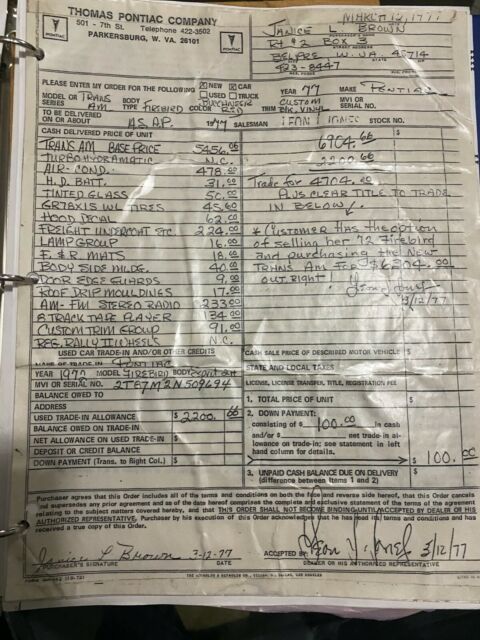 THOMAS PONTIAC COMPANY
501 - 7th St. Telephone 422-3502
PARKERSBURG, W. VA. 26101
PONTIAC
PONTIAC
MARCH 12, 1977
JANICE L. BROWN
Rt #2 BOX 3
STREET ADDRESS
BELPRE W. VA. 45714
423-8447
PLEASE ENTER MY ORDER FOR THE FOLLOWING NEW CAR YEAR 77 MAKE PONTIAC
USED TRUCK
MODEL OR SERIES TRANS AM BODY TYPE FIREBIRD COLOR BUCCANEER RED TRIM CUSTOM BLK. VINYL MVI OR SERIAL NO.
TO BE DELIVERED ON OR ABOUT A.S.A.P. 1977 SALESMAN LEON J JONES STOCK NO.
CASH DELIVERED PRICE OF UNIT $ $
TRANS AM BASE PRICE 5456.00
TURBO HYDRAMATIC N.C.
AIR-COND. 478.00
H.D. BATT. 31.00
TINTED GLASS 50.00
GR78X15 WL TIRES 45.60
HOOD DECAL 62.00
FREIGHT UNDERCOAT ETC. 224.00
LAMP GROUP 16.00
F. & R. MATS 18.00
BODY SIDE MLDG. 40.00
DOOR EDGE GUARDS 9.00
ROOF DRIP MOULDINGS 17.00
AM-FM STEREO RADIO 233.00
8 TRACK TAPE PLAYER 134.00
CUSTOM TRIM GROUP 91.00
REG. RALLY II WHEELS N.C.
6904.00
2200.00
Trade for 4704.00
PLUS CLEAR TITLE TO TRADE
IN BELOW
* Customer has the option
of selling her 72 Firebird
and purchasing the New
TRANS AM FOR $6304.00
out right!!!
3/12/77
USED CAR TRADE-IN AND/OR OTHER CREDITS
NAME OF TRADE IN PONTIAC
YEAR 1972 MODEL FIREBIRD BODY
MVI OR SERIAL NO. 2T87M2N509694
BALANCE OWED TO
ADDRESS
USED TRADE-IN ALLOWANCE $ 2200.00
BALANCE OWED ON TRADE-IN
NET ALLOWANCE ON USED TRADE-IN $
DEPOSIT OR CREDIT BALANCE
DOWN PAYMENT (Trans. to Right Col.) $
CASH SALE PRICE OF DESCRIBED MOTOR VEHICLE $
STATE AND LOCAL TAXES
LICENSE, LICENSE TRANSFER, TITLE, REGISTRATION FEE
1. TOTAL PRICE OF UNIT $
2. DOWN PAYMENT:
consisting of $ 100.00 in cash
and/or $ net trade-in al-
lowance on trade-in; see statement in left
hand column for details.
$ 100.00
3. UNPAID CASH BALANCE DUE ON DELIVERY
(difference between Items 1 and 2) $
Purchaser agrees that this Order includes all of the terms and conditions on both the face and reverse side hereof, that this Order cancels
and supersedes any prior agreement and as of the date hereof comprises the complete and exclusive statement of the terms of the agreement
relating to the subject matters covered hereby, and that THIS ORDER SHALL NOT BECOME BINDING UNTIL ACCEPTED BY DEALER OR HIS
AUTHORIZED REPRESENTATIVE. Purchaser by his execution of this Order acknowledges that he has read its terms and conditions and has
received a true copy of this Order.
Janice L Brown 3-12-77
PURCHASER'S SIGNATURE DATE
ACCEPTED BY: Leon J. Jones 3/12/77
DEALER OR HIS AUTHORIZED REPRESENTATIVE